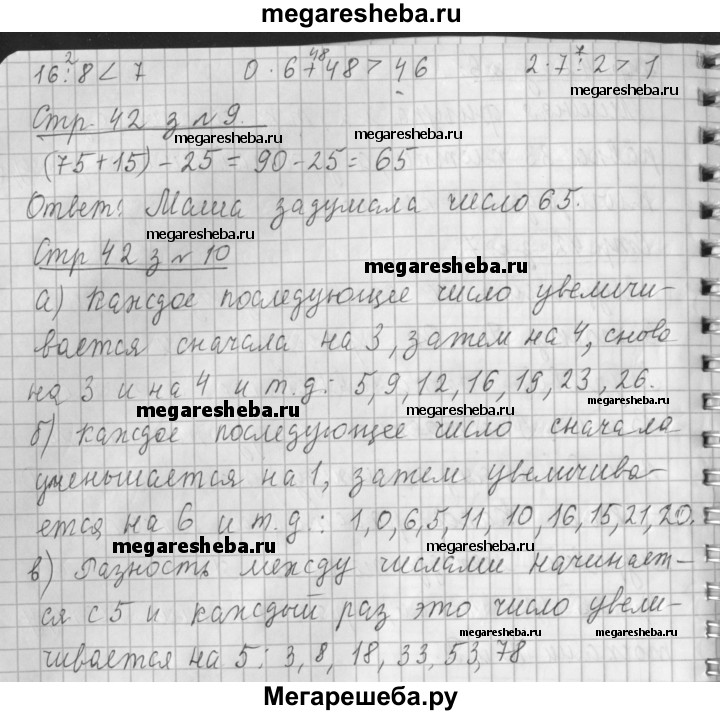 megaresheba.ru
2 48 7
16:8<7 0·6+48>46 2·7:2>1
Стр. 42 з №9.
megaresheba.ru megaresheba.ru
(75+15)-25=90-25=65
Ответ: Маша задумала число 65.
megaresheba.ru megaresheba.ru
Стр 42 з № 10
megaresheba.ru
а) Каждое последующее число увеличи-
вается сначала на 3, затем на 4, снова
на 3 и на 4 и т.д: 5,9,12,16,19,23,26.
megaresheba.ru megaresheba.ru megaresheba.ru
б) Каждое последующее число сначала
уменьшается на 1, затем увеличива-
ется на 6 и т.д.: 1,0,6,5,11,10,16,15,21,20.
megaresheba.ru megaresheba.ru megaresheba.ru
в) Разность между числами начинает-
ся с 5 и каждый раз это число увели-
megaresheba.ru megaresheba.ru
чивается на 5: 3,8,18,33,53,78
Мегарешеба.ру